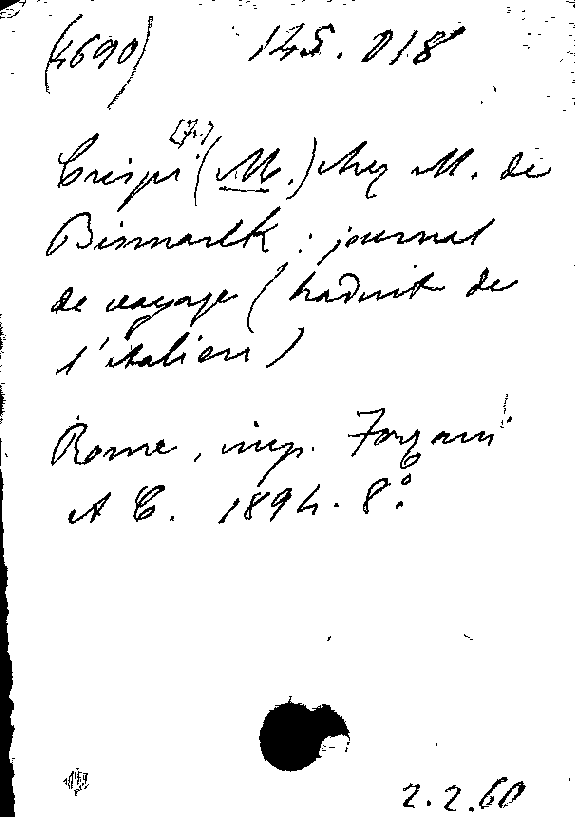 (4690) 145.018
[F.]
Crispi (M.) chez M. de
Bismarck : journal
de voyage (traduit de
l'italien)
Rome, imp. Forzani
& C. 1894. 8°.
2.2.60